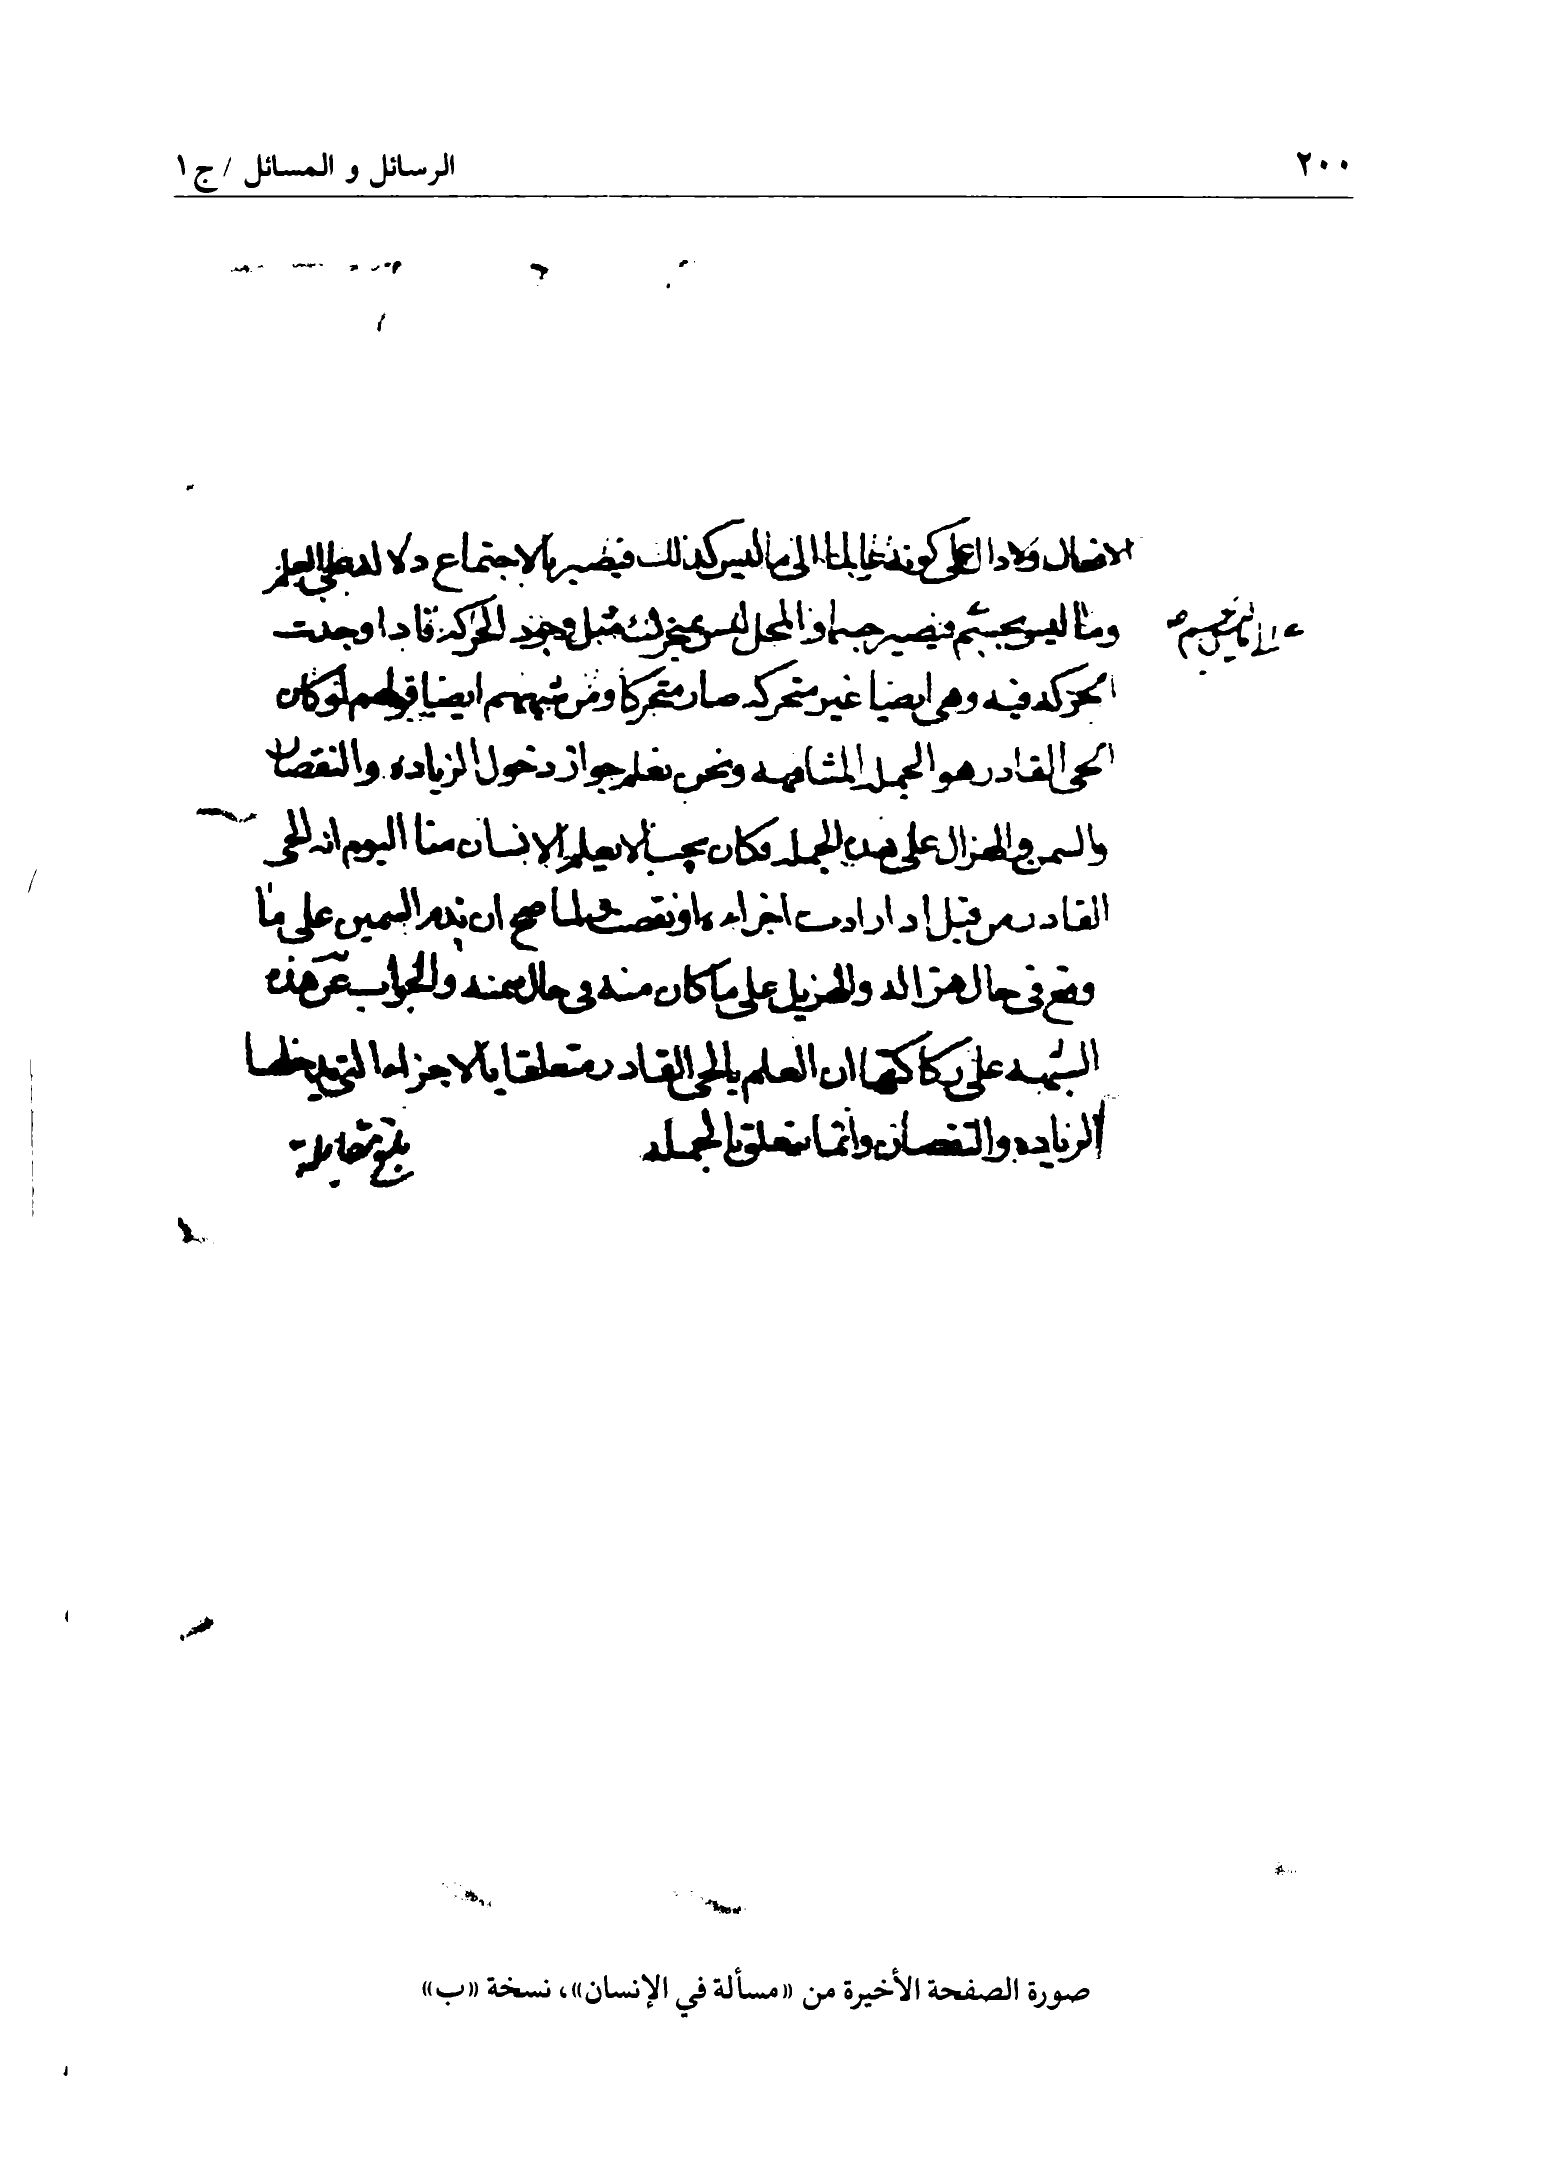 ٢٠٠
الرسائل و المسائل / ج ١
الافعال ولا دال على كونه عالما الى ما ليس كذلك فيصير بالاجتماع دلالة على العلم
وما ليس بجسم فيصير جسما والمحل ليس بمتحرك قبل وجود الحركة فاذا وجدت
الحركه فيه وهى ايضا غير متحركه صار متحركا ومن شبههم ايضا قولهم لو كان
الحى القادر هو الجمله المشاهده ونحن نعلم جواز دخول الزياده والنقصان
والسمن والهزال على هذه الجمله فكان يجب الا يعلم الانسان منا اليوم انه الحى
القادر من قبل اذا زادت اجزاءه او نقصت ولما صح ان يذم السمين على ما
وقع فى حال هزاله والهزيل على ما كان منه فى حال سمنه والجواب عن هذه
الشبهه على ركاكتها ان العلم بالحى القادر متعلقا بالاجزاء التى يدخلها
الزياده والنقصان وانما يتعلق بالجمله
بلغ مقابلة
صورة الصفحة الأخيرة من «مسألة في الإنسان»، نسخة «ب»